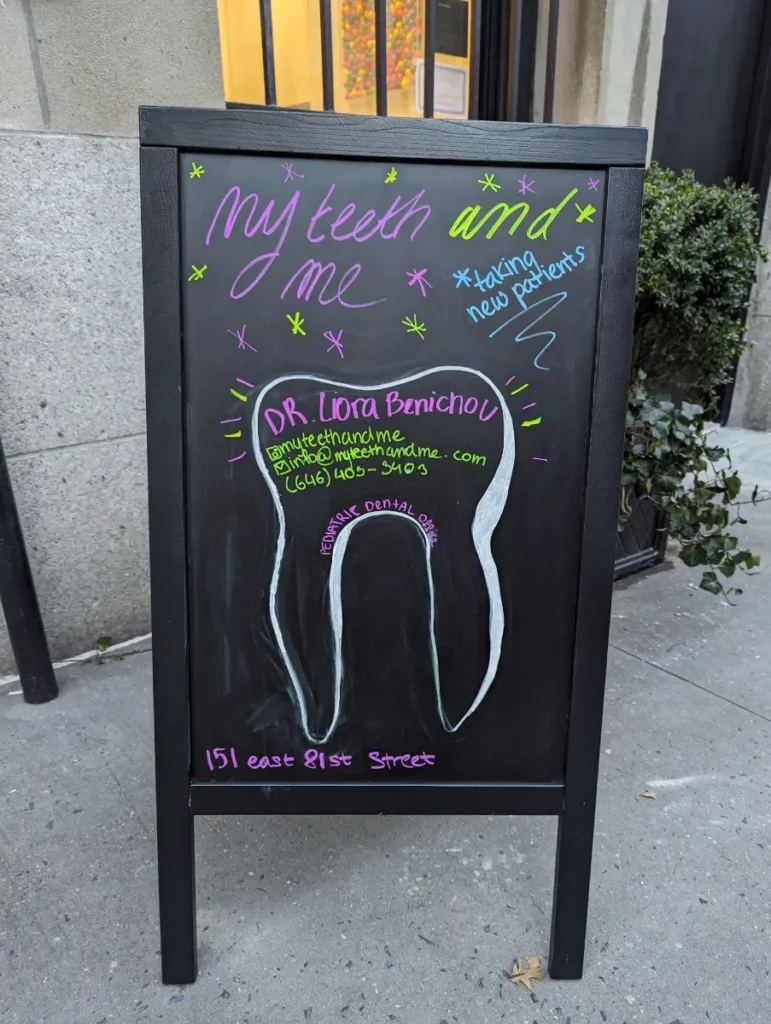 my teeth and
me
*taking
new patients
DR. Liora Benichou
@myteethandme
info@myteethandme.com
(646) 405-3403
PEDIATRIC DENTAL OFFICE
151 east 81st Street